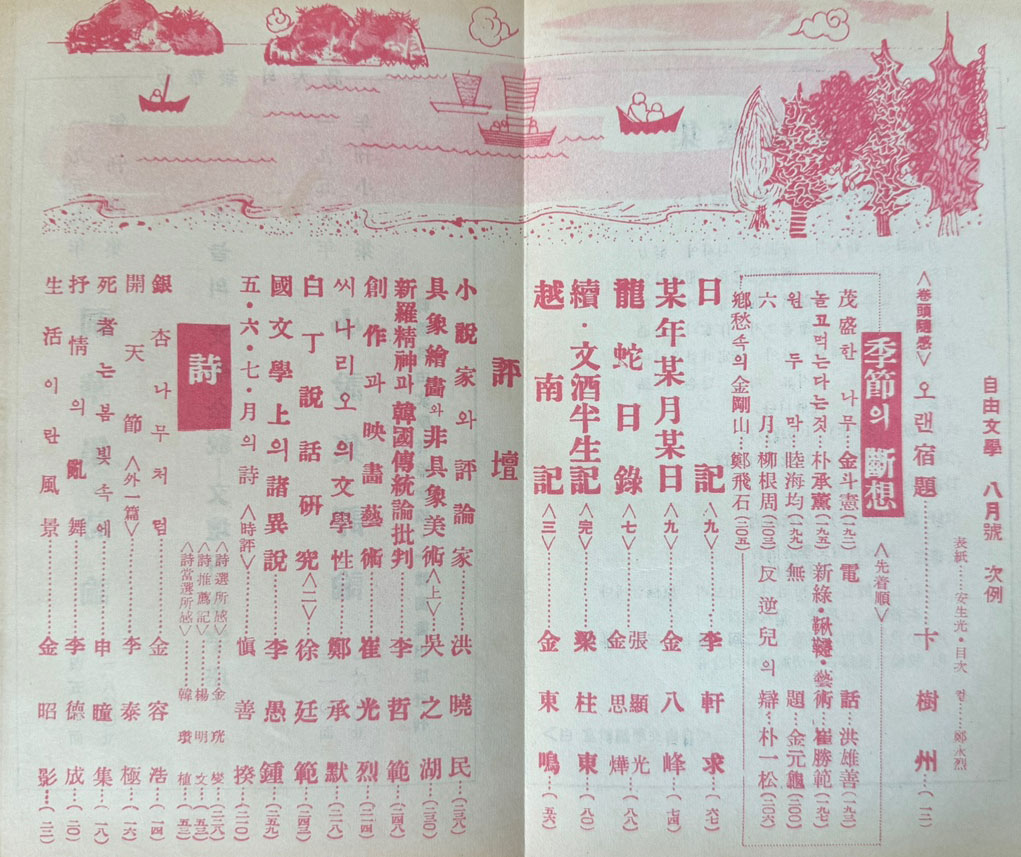 自由文學 八月號 次例
表紙……安生光・目次 컽……鄭永烈
<卷頭隨感> 오랜宿題……卞樹州…(一二)
季節의 斷想 <先着順>
茂盛한 나무…金斗憲(一九二) 電話…洪雄善(一九三)
놀고먹는다는것…朴承薰(一九五) 新綠・鞦韆・藝術…崔勝範(一九七)
원두막…睦海均(一九九) 無題…金元龜(二〇〇)
六月…柳根周(二〇三) 反逆兒의 辯…朴一松(二〇六)
鄕愁속의 金剛山…鄭飛石(二〇五)
日記……李軒求…(六七)
某年某月某日<九>……金八峰…(七四)
龍蛇日錄<七>……張顯光 金思燁…(八八)
續・文酒半生記<完>……梁柱東…(八〇)
越南記<三>……金東鳴…(五六)
評壇
小說家와 評論家……洪曉民…(二三八)
具象繪畵와 非具象美術<上>…吳之湖…(二三〇)
新羅精神과 韓國傳統論批判……李哲範…(二四八)
創作과 映畵藝術……崔光烈…(二一四)
씨나리오의 文學性……鄭承默…(二一八)
白丁說話硏究<二>…徐廷範…(二四三)
國文學上의 諸異說……李愚鍾…(二五九)
五・六・七・月의 詩 <時評>……愼善揆…(二一〇)
詩
<詩選所感>……金珖燮(二二八)
<詩推薦記>……楊明文(五三)
<詩當選所感>……韓瓚植(五三)
銀杏나무처럼……金容浩…(一四)
開天節 <外一篇>……李泰極…(一六)
死者는 봄빛속에……申瞳集…(一八)
抒情의 亂舞……李德成…(二〇)
生活이란 風景……金昭影…(二二)